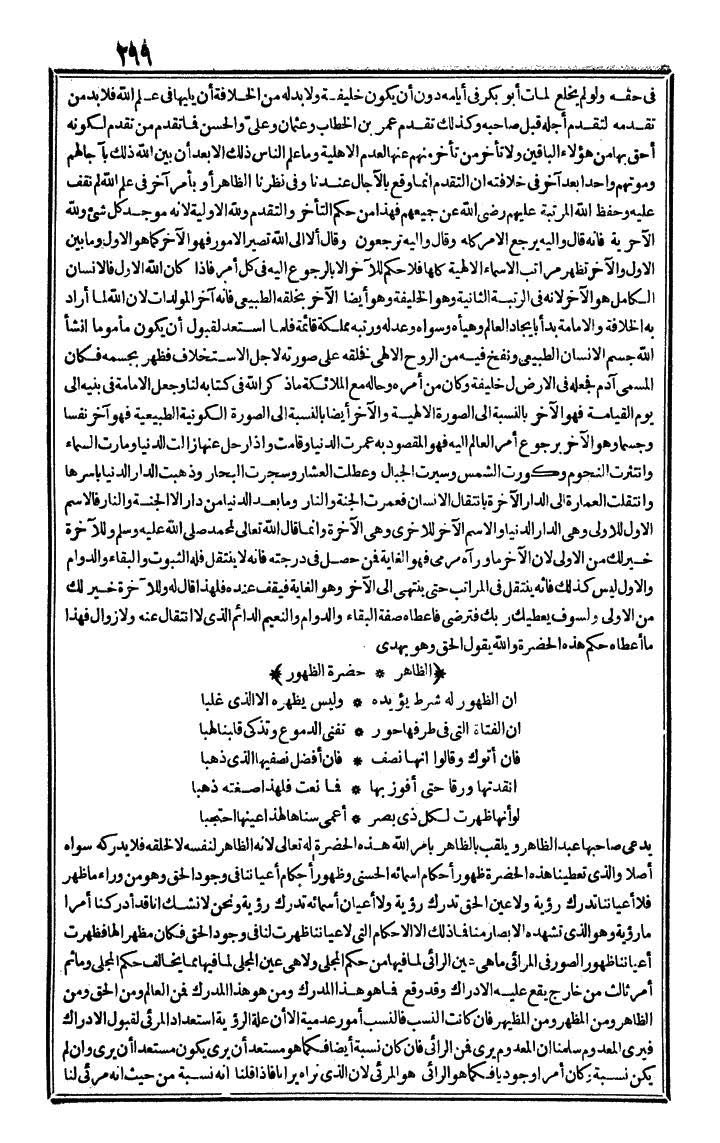 ٢٩٩
فى حقه ولولم يخلع لمات أبو بكر فى أيامه دون أن يكون خليفة ولا بد له من الخلافة أن يليها فى علم الله فلا بد من
تقدمه لتقدم أجله قبل صاحبه وكذلك تقدم عمر بن الخطاب وعثمان وعلىّ والحسن فما تقدم من تقدم لكونه
أحق بها من هؤلاء الباقين ولا تأخر من تأخر منهم عنها لعدم الاهلية وما علم الناس ذلك الا بعد أن بين الله ذلك بآجالهم
وموتهم واحدا بعد آخر فى خلافته ان التقدم انما وقع بالآجال عندنا وفى نظرنا الظاهر أو بأمر آخر فى علم الله لم نقف
عليه وحفظ الله المرتبة عليهم رضى الله عن جميعهم فهذا من حكم التأخر والتقدم ولله الاولية لانه موجد كل شئ ولله
الآخرية فانه قال واليه يرجع الامر كله وقال واليه ترجعون وقال ألا الى الله تصير الامور فهو الآخر كما هو الاول وما بين
الاول والآخر تظهر مراتب الاسماء الالهية كلها فلا حكم للآخر الا بالرجوع اليه فى كل أمر فاذا كان الله الاول فالانسان
الكامل هو الآخر لانه فى الرتبة الثانية وهو الخليفة وهو أيضا الآخر بخلقه الطبيعى فانه آخر المولدات لان الله لما أراد
به الخلافة والامامة بدأ بايجاد العالم وهيأه وسواه وعدله ورتبه مملكة قائمة فلما استعد لقبول أن يكون مأموما انشأ
الله جسم الانسان الطبيعى ونفخ فيه من الروح الالهى فخلقه على صورته لاجل الاستخلاف فظهر بجسمه فكان
المسمى آدم فجعله فى الارض خليفة وكان من أمره وحاله مع الملائكة ما ذكر الله فى كتابه لنا وجعل الامامة فى بنيه الى
يوم القيامة فهو الآخر بالنسبة الى الصورة الالهية والآخر أيضا بالنسبة الى الصورة الكونية الطبيعية فهو آخر نفسا
وجسما وهو الآخر برجوع أمر العالم اليه فهو المقصود به عمرت الدنيا وقامت واذا رحل عنها زالت الدنيا ومارت السماء
وانتثرت النجوم وكورت الشمس وسيرت الجبال وعطلت العشار وسجرت البحار وذهبت الدار الدنيا باسرها
وانتقلت العمارة الى الدار الآخرة بانتقال الانسان فعمرت الجنة والنار وما بعد الدنيا من دار الا الجنة والنار فالاسم
الاول للاولى وهى الدار الدنيا والاسم الآخر للاخرى وهى الآخرة وانما قال الله تعالى لمحمد صلى الله عليه وسلم وللآخرة
خير لك من الاولى لان الآخر ما وراءه مرمى فهو الغاية فمن حصل فى درجته فانه لا ينتقل فله الثبوت والبقاء والدوام
والاول ليس كذلك فانه ينتقل فى المراتب حتى ينتهى الى الآخر وهو الغاية فيقف عنده فلهذا قال له وللآخرة خير لك
من الاولى ولسوف يعطيك ربك فترضى فاعطاه صفة البقاء والدوام والنعيم الدائم الذى لا انتقال عنه ولا زوال فهذا
ما أعطاه حكم هذه الحضرة والله يقول الحق وهو يهدى
﴿الظاهر * حضرة الظهور﴾
ان الظهور له شرط يؤيده * وليس يظهره الا الذى غلبا
ان الفتاة التى فى طرفها حور * تفنى الدموع وتذكى قلبنا لهبا
فان أتوك وقالوا انها نصف * فان أفضل نصفيها الذى ذهبا
انقدتها ورقا حتى أفوز بها * فما نعت فلهذا صغته ذهبا
لو أنها ظهرت لكل ذى بصر * أعمى سناها لهذا عينها احتجبا
يدعى صاحبها عبد الظاهر ويلقب بالظاهر بامر الله هذه الحضرة له تعالى لانه الظاهر لنفسه لا لخلقه فلا يدركه سواه
أصلا والذى تعطينا هذه الحضرة ظهور أحكام اسمائه الحسنى وظهور أحكام أعياننا فى وجود الحق وهو من وراء ما ظهر
فلا أعياننا تدرك رؤية ولا عين الحق تدرك رؤية ولا أعيان أسمائه تدرك رؤية ونحن لا نشك انا قد أدركنا أمرا
ما رؤية وهو الذى تشهده الابصار منا فما ذلك الا الاحكام التى لاعياننا ظهرت لنا فى وجود الحق فكان مظهرا لها فظهرت
أعياننا ظهور الصور فى المرائى ما هى عين الرائى لما فيها من حكم المجلى ولا هى عين المجلى لما فيها مما يخالف حكم المجلى وما ثم
أمر ثالث من خارج يقع عليه الادراك وقد وقع فما هو هذا المدرك ومن هو هذا المدرك فمن العالم ومن الحق ومن
الظاهر ومن المظهر ومن المظهر فان كانت النسب فالنسب أمور عدمية الا أن علة الرؤية استعداد المرئى لقبول الادراك
فيرى المعدوم سلمنا ان المعدوم يرى فمن الرائى فان كان نسبة أيضا فكما هو مستعد أن يرى يكون مستعدا أن يرى وان لم
يكن نسبة وكان أمرا وجوديا فكما هو الرائى هو المرئى لان الذى نراه يرانا فاذا قلنا انه نسبة من حيث انه مرئى لنا